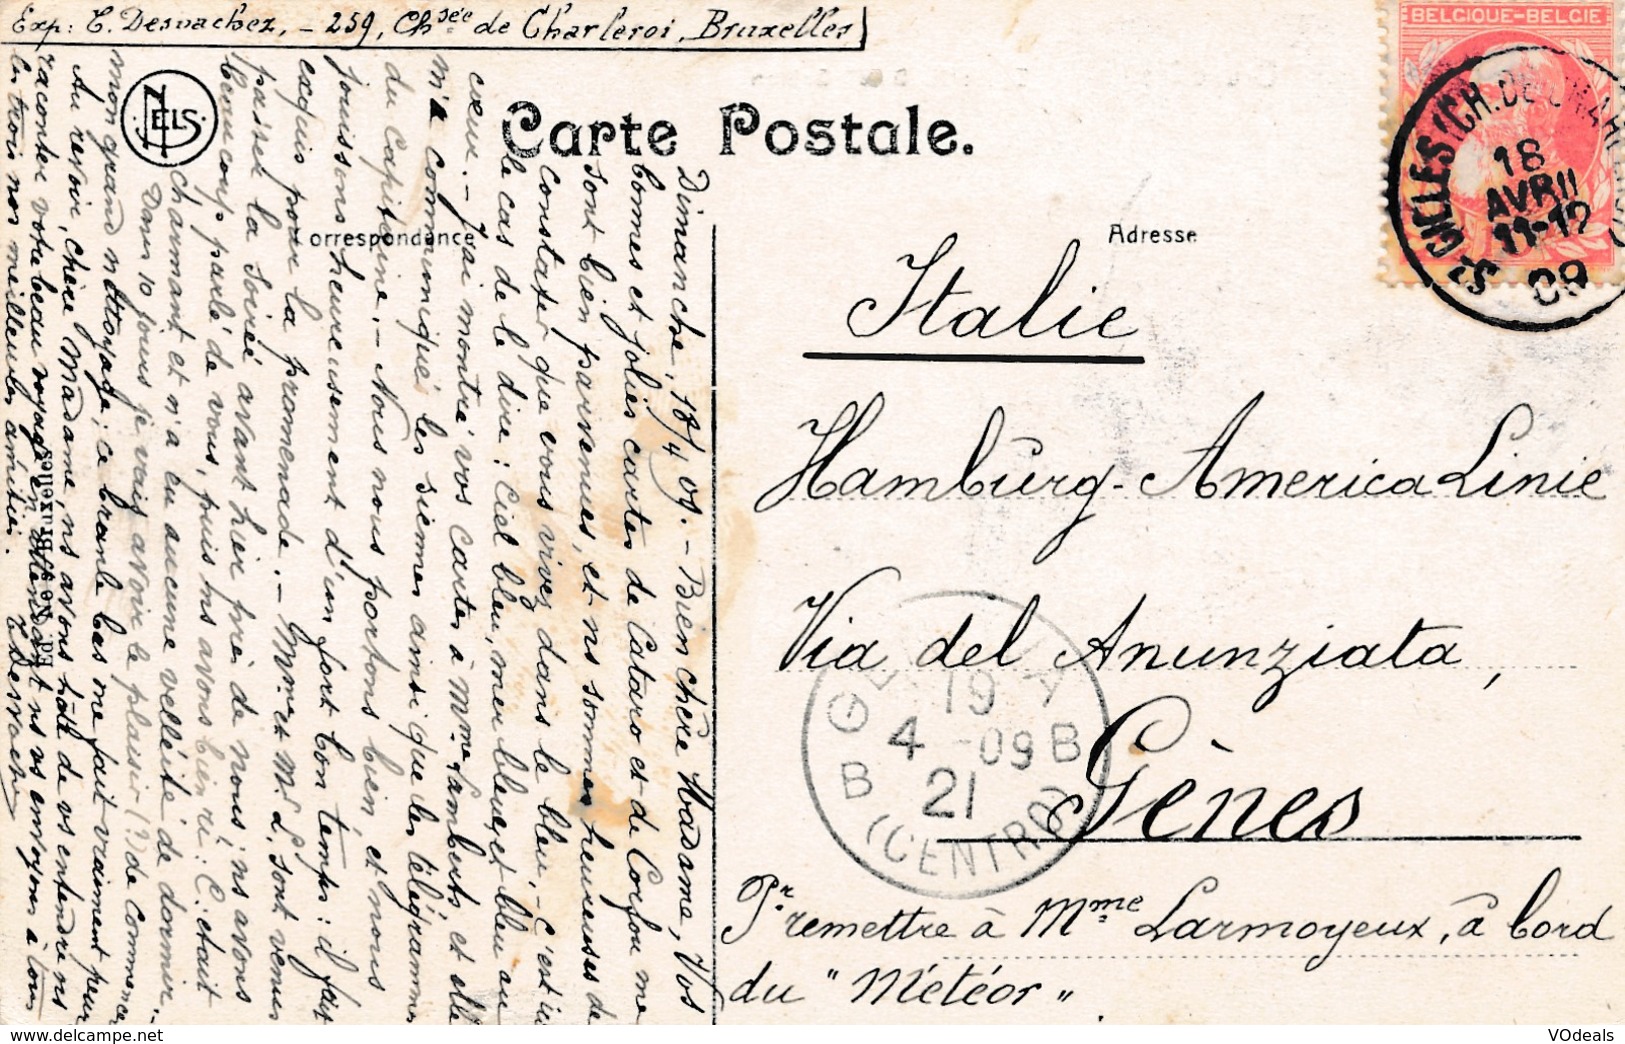 Exp: E. Desnachez, - 259, Chsée de Charleroi, Bruxelles
BELGIQUE-BELGIE
St GILLES (CH. DE CHARLEROI)
18
AVRIL
11-12
09
NELS
Carte Postale.
Correspondance
Adresse
Dimanche, 18/4 09. - Bien chère Madame, Vos
bonnes et jolies cartes de Cataro et de Corfou me
sont bien parvenues, et ns sommes heureuses de
constater que vous vivez dans le bleu. - C'est ici
le cas de le dire: Ciel bleu, mer bleue, et bleu au
cœur. - J'ai montré vos cartes à Mme Lamberts et elle
m'a communiqué les siennes ainsi que les télégrammes
du Capitaine. - Nous nous portons bien, et nous
jouissons heureusement d'un fort bon temps: il fait
exquis pour la promenade. - Mme et Mr L. sont venus
passer la soirée avant hier près de nous; ns avons
beaucoup parlé de vous, puis ns avons bien ri: C'était
charmant et n'a eu aucune velléité de dormir. -
Dans 10 jours je vais avoir le plaisir (?) de commencer
mon grand nettoyage; ce branle bas me fait vraiment peur
Au revoir, chère Madame, ns avons hâte de vs entendre ns
raconter votre beau voyage en attendant ns vs envoyons à tous
les trois nos meilleures amitiés.
Ed. Nels, Bruxelles
Italie
Hamburg-America Linie
Via del Anunziata,
Gênes
Pr remettre à Mme Larmoyeux, à bord
du "Météor".
GENOVA
19
4 -09 B
B 21
(CENTRO)
VOdeals